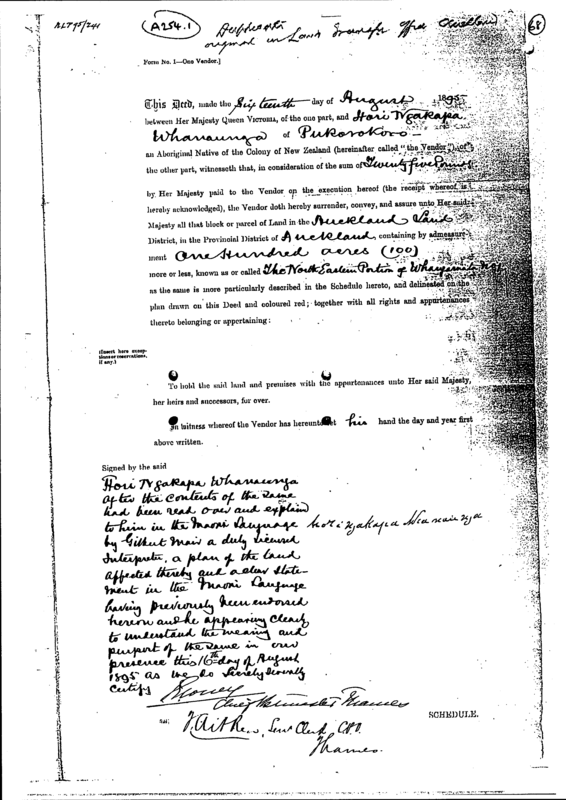 NLT 95/241
(A254.1)
Duplicate
original in Land Transfer Office Auckland
68
Form No. 1—One Vendor.]
This Deed, made the Sixteenth day of August 1895
between Her Majesty Queen Victoria, of the one part, and Hori Ngakapa
Whanaunga of Pukorokoro
an Aboriginal Native of the Colony of New Zealand (hereinafter called "the Vendor"), of
the other part, witnesseth that, in consideration of the sum of Twenty five Pounds
by Her Majesty paid to the Vendor on the execution hereof (the receipt whereof is
hereby acknowledged), the Vendor doth hereby surrender, convey, and assure unto Her said
Majesty all that block or parcel of Land in the Auckland Land
District, in the Provincial District of Auckland, containing by admeasure-
ment One Hundred acres (100)
more or less, known as or called The North Eastern Portion of
as the same is more particularly described in the Schedule hereto, and delineated on the
plan drawn on this Deed and coloured red; together with all rights and appurtenances
thereto belonging or appertaining:
(Insert here excep-
tions or reservations,
if any.)
To hold the said land and premises with the appurtenances unto Her said Majesty,
her heirs and successors, for ever.
In witness whereof the Vendor has hereunto set his hand the day and year first
above written.
Signed by the said
Hori Ngakapa Whanaunga
after the contents of the same
had been read over and explain
to him in the Maori Language
hori ngakapa
by Gilbert Mair a duly licensed
Interpreter, a plan of the land
affected thereby and a clear state-
ment in the Maori Language
having previously been endorsed
hereon and he appearing clearly
to understand the meaning and
purport of the same in our
presence this 16th day of August
1895 as we do severally
certify
Chief Postmaster Thames
J. Aitken, Senr Clerk, C.P.O.
Thames.
SCHEDULE.